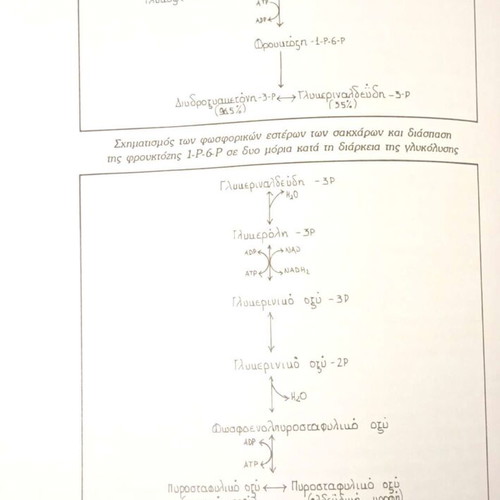 ATP
ADP
Φρουκτόζη -1-P-6-P
Διυδροξυακετόνη-3-P ⟷ Γλυκεριναλδεύδη -3-P
(96.5%) (3.5%)
Σχηματισμός των φωσφορικών εστέρων των σακχάρων και διάσπαση
της φρουκτόζης 1-P-6-P σε δυο μόρια κατά τη διάρκεια της γλυκόλυσης
Γλυκεριναλδεύδη -3P
H₂O
Γλυκερόλη -3P
ADP NAD
ATP NADH₂
Γλυκερινικό οξύ -3P
Γλυκερινικό οξύ -2P
H₂O
Φωσφοενολπυροσταφυλικό οξύ
ADP
ATP
Πυροσταφυλικό οξύ ⟷ Πυροσταφυλικό οξύ